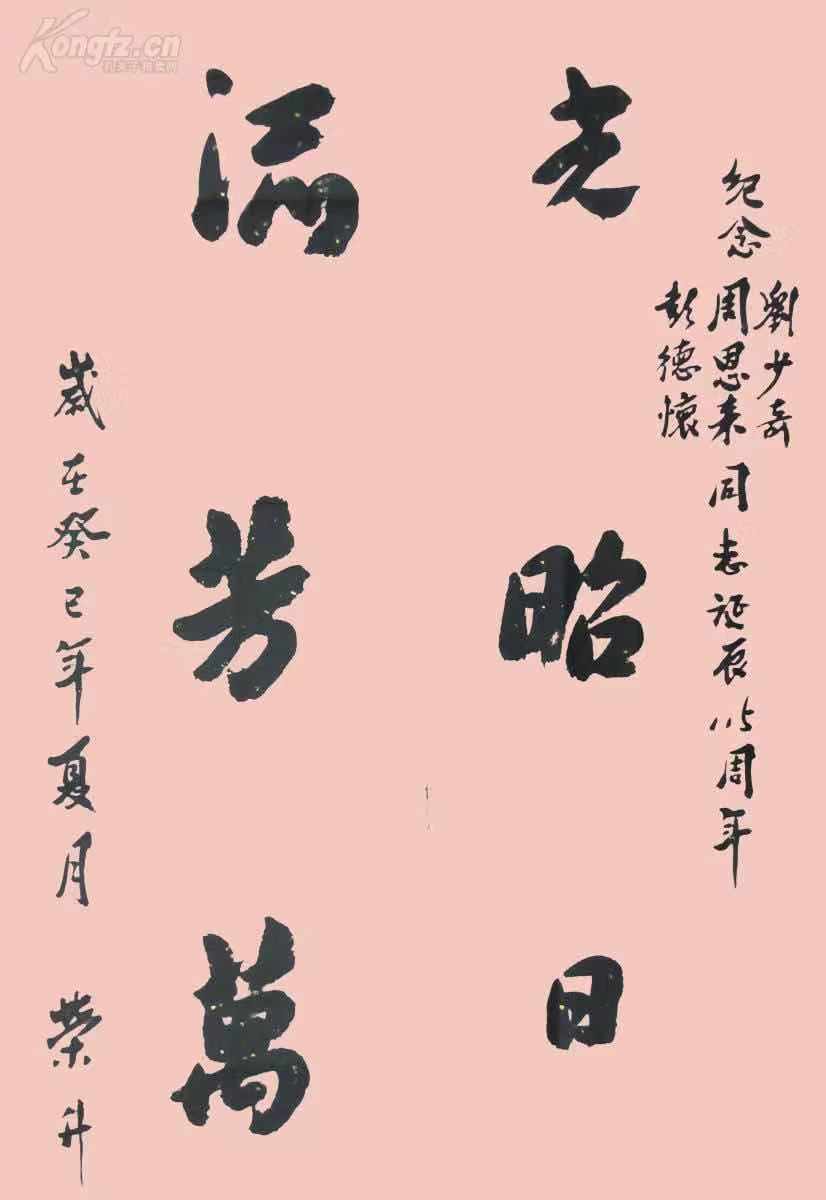 纪念
劉少奇
周恩来
彭德懷
同志誕辰115周年
光昭日
流芳萬
歲在癸巳年夏月 荣升
Kongfz.cn